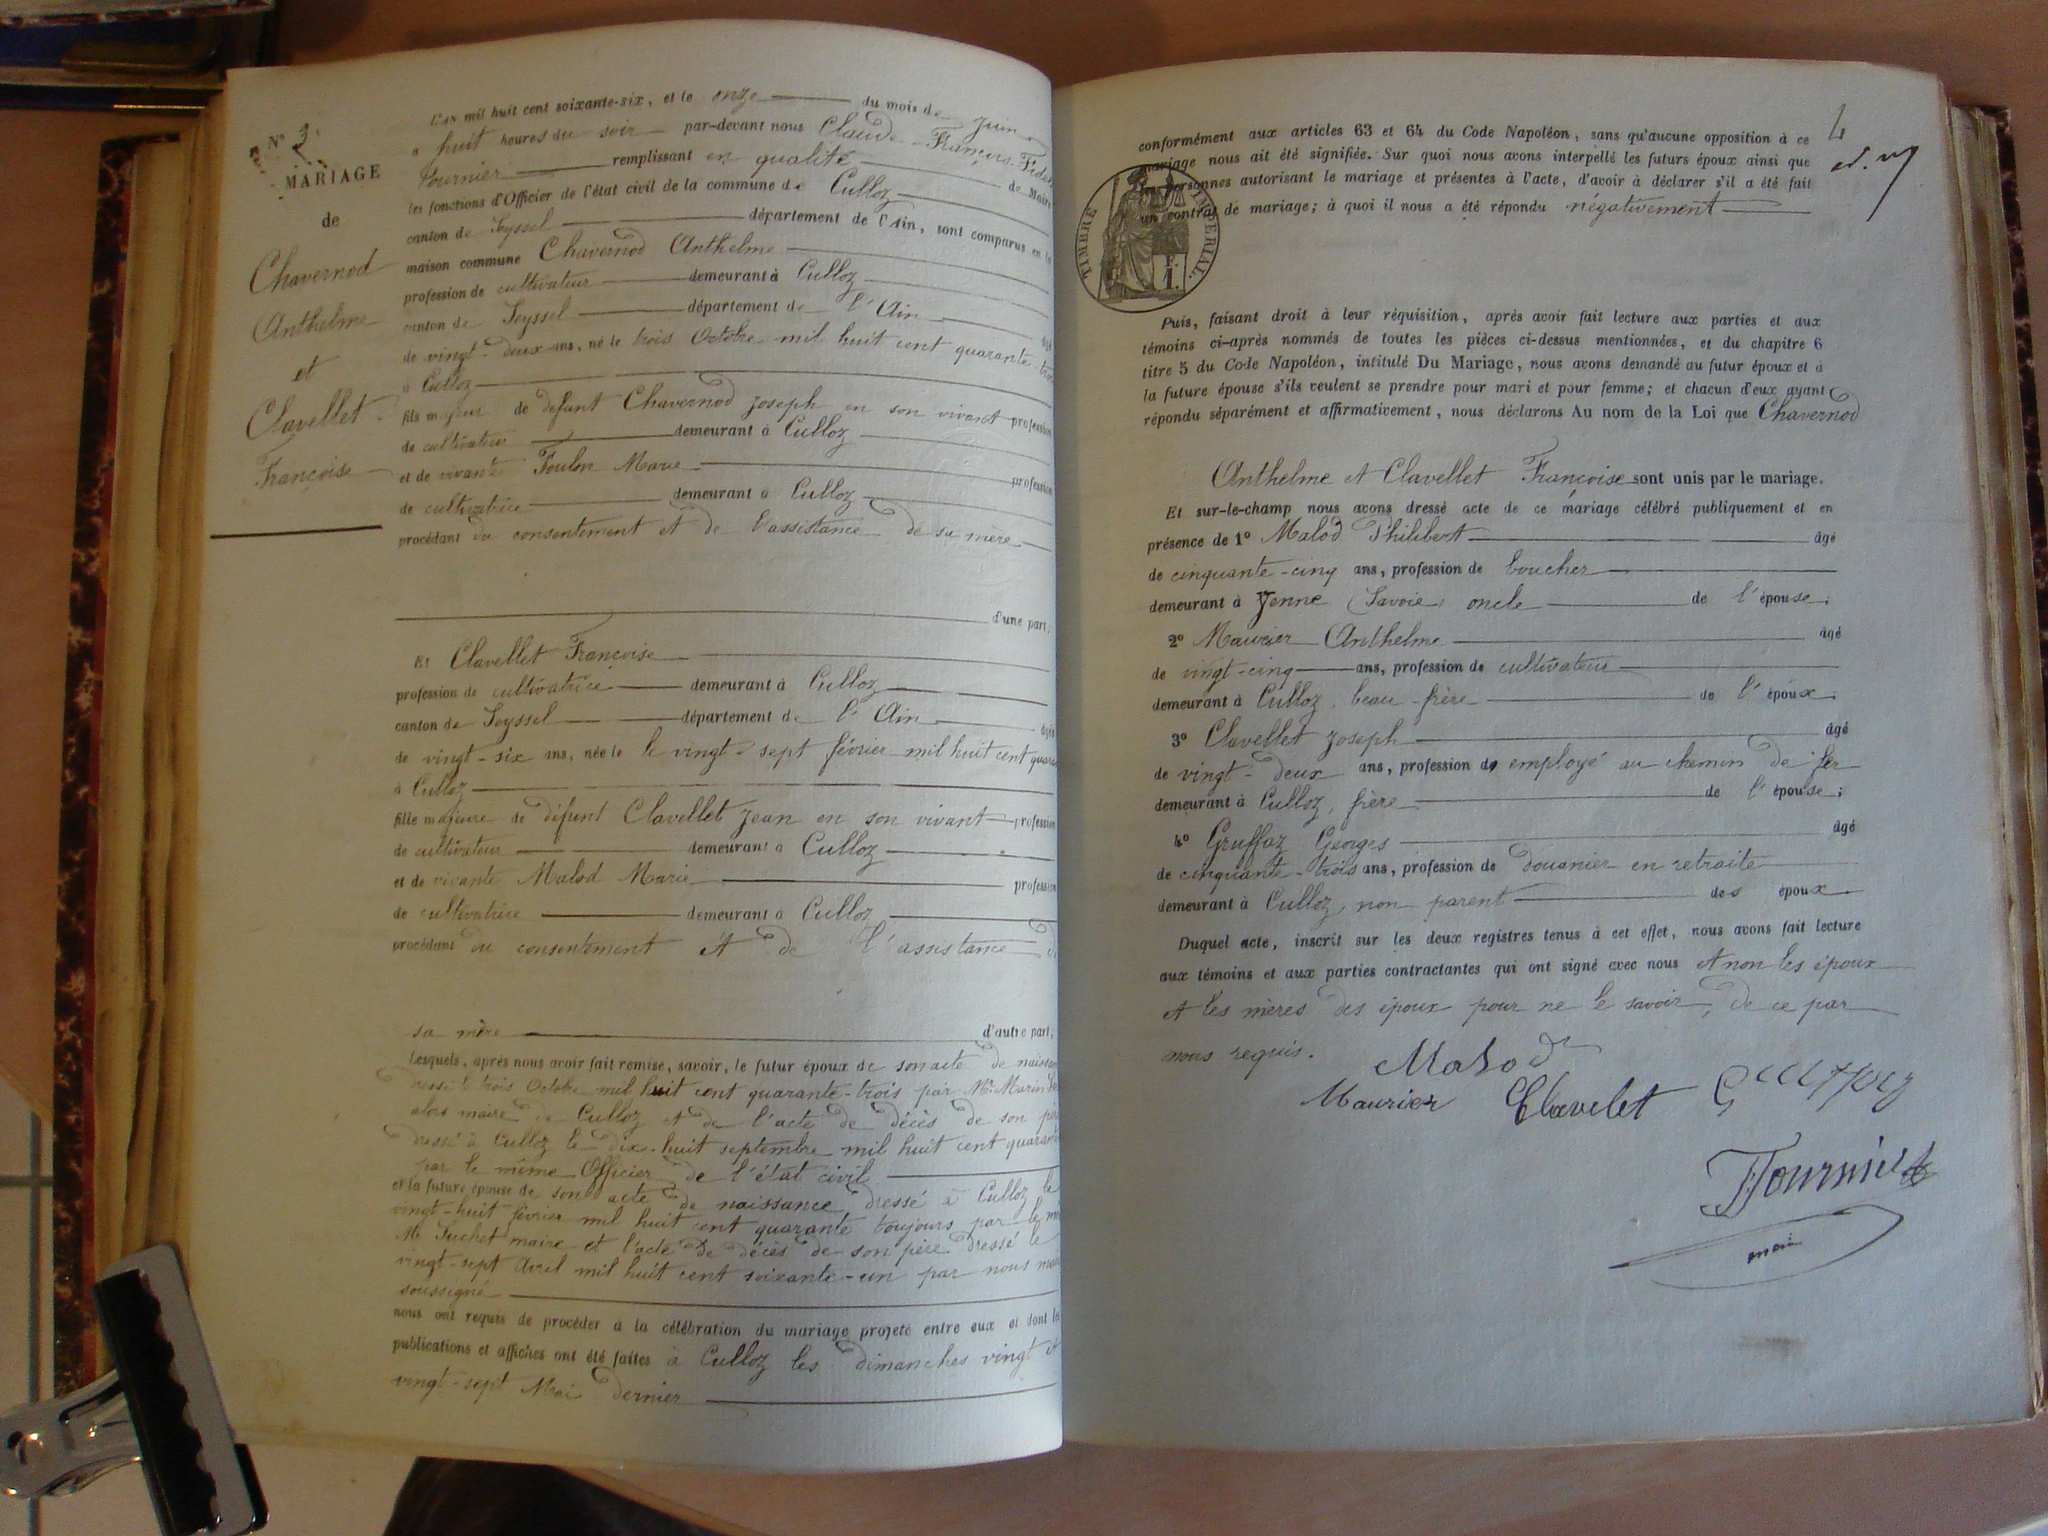 N° 3
MARIAGE
de
Chavernod
Anthelme
et
Clavellet
Françoise
L'AN mil huit cent soixante-six, et le onze du mois de Juin
à huit heures du soir par-devant nous Claude François Fidèle
Fournier remplissant en qualité de Maire
les fonctions d'Officier de l'état civil de la commune de Culloz
canton de Seyssel département de l'Ain, sont comparus en la
maison commune Chavernod Anthelme
profession de cultivateur demeurant à Culloz
canton de Seyssel département de l'Ain âgé
de vingt-deux ans, né le trois Octobre mil huit cent quarante-trois
à Culloz
fils majeur de défunt Chavernod Joseph en son vivant profession
de cultivateur demeurant à Culloz
et de vivante Foulon Marie profession
de cultivatrice demeurant à Culloz
procédant du consentement et de l'assistance de sa mère
d'une part;
Et Clavellet Françoise
profession de cultivatrice demeurant à Culloz
canton de Seyssel département de l'Ain âgée
de vingt-six ans, née le le vingt-sept février mil huit cent quara
à Culloz
fille majeure de défunt Clavellet Jean en son vivant profession
de cultivateur demeurant à Culloz
et de vivante Malod Marie profession
de cultivatrice demeurant à Culloz
procédant du consentement et de l'assistance d
sa mère d'autre part;
Lesquels, après nous avoir fait remise, savoir, le futur époux de son acte de naissan
dressé le trois Octobre mil huit cent quarante-trois par Mr Marin
alors maire de Culloz et de l'acte de décès de son père
dressé à Culloz le dix-huit septembre mil huit cent quarante
par le même Officier de l'état civil
et la future épouse de son acte de naissance dressé à Culloz le
vingt-huit février mil huit cent quarante toujours par le mê
M. Suchet maire et l'acte de décès de son père dressé le
vingt-sept Avril mil huit cent soixante-un par nous mai
soussigné
nous ont requis de procéder à la célébration du mariage projeté entre eux et dont les
publications et affiches ont été faites à Culloz les dimanches vingt et
vingt-sept Mai dernier
4
conformément aux articles 63 et 64 du Code Napoléon, sans qu'aucune opposition à ce
mariage nous ait été signifiée. Sur quoi nous avons interpellé les futurs époux ainsi que
personnes autorisant le mariage et présentes à l'acte, d'avoir à déclarer s'il a été fait
un contrat de mariage; à quoi il nous a été répondu négativement
TIMBRE IMPÉRIAL.
F.
1.
Puis, faisant droit à leur réquisition, après avoir fait lecture aux parties et aux
témoins ci-après nommés de toutes les pièces ci-dessus mentionnées, et du chapitre 6
titre 5 du Code Napoléon, intitulé Du Mariage, nous avons demandé au futur époux et à
la future épouse s'ils veulent se prendre pour mari et pour femme; et chacun d'eux ayant
répondu séparément et affirmativement, nous déclarons Au nom de la Loi que Chavernod
Anthelme et Clavellet Françoise sont unis par le mariage.
Et sur-le-champ nous avons dressé acte de ce mariage célébré publiquement et en
présence de 1° Malod Philibert âgé
de cinquante-cinq ans, profession de boucher
demeurant à Yenne (Savoie) oncle de l'épouse;
2° Maurier Anthelme âgé
de vingt-cinq ans, profession de cultivateur
demeurant à Culloz, beau-frère de l'époux;
3° Clavellet Joseph âgé
de vingt-deux ans, profession de employé au chemin de fer
demeurant à Culloz, frère de l'épouse;
4° Gruffaz Georges âgé
de cinquante-trois ans, profession de douanier en retraite
demeurant à Culloz, non parent des époux
Duquel acte, inscrit sur les deux registres tenus à cet effet, nous avons fait lecture
aux témoins et aux parties contractantes qui ont signé avec nous et non les époux
et les mères des époux pour ne le savoir, de ce par
nous requis.
Malod
Maurier Clavelet Gruffaz
Fournier